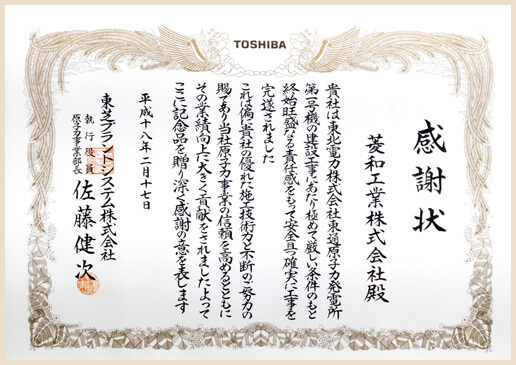 TOSHIBA
感謝状
菱和工業株式会社殿
貴社は東北電力株式会社東通原子力発電所
第一号機の建設工事にあたり極めて厳しい条件のもと
終始旺盛なる責任感をもって安全且つ確実に工事を
完遂されました
これは偏に貴社の優れた施工技術力と不断のご努力の
賜であり当社原子力事業の信頼を高めるとともに
その業績向上に大きく貢献をされましたよって
ここに記念品を贈り深く感謝の意を表します
平成十八年二月十七日
東芝プラントシステム株式会社
執行役員
原子力事業部長
佐藤健次